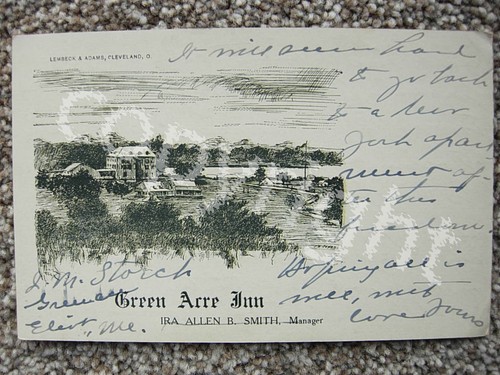 LEMBECK & ADAMS, CLEVELAND, O.
It will seem hard
to go back
to a New
York apart-
ment af-
ter this
freedom.
Hoping all is
well, with
love yours
J. M. Storch
Eliot, Me.
Green Acre Inn
IRA ALLEN B. SMITH, Manager
Copyright